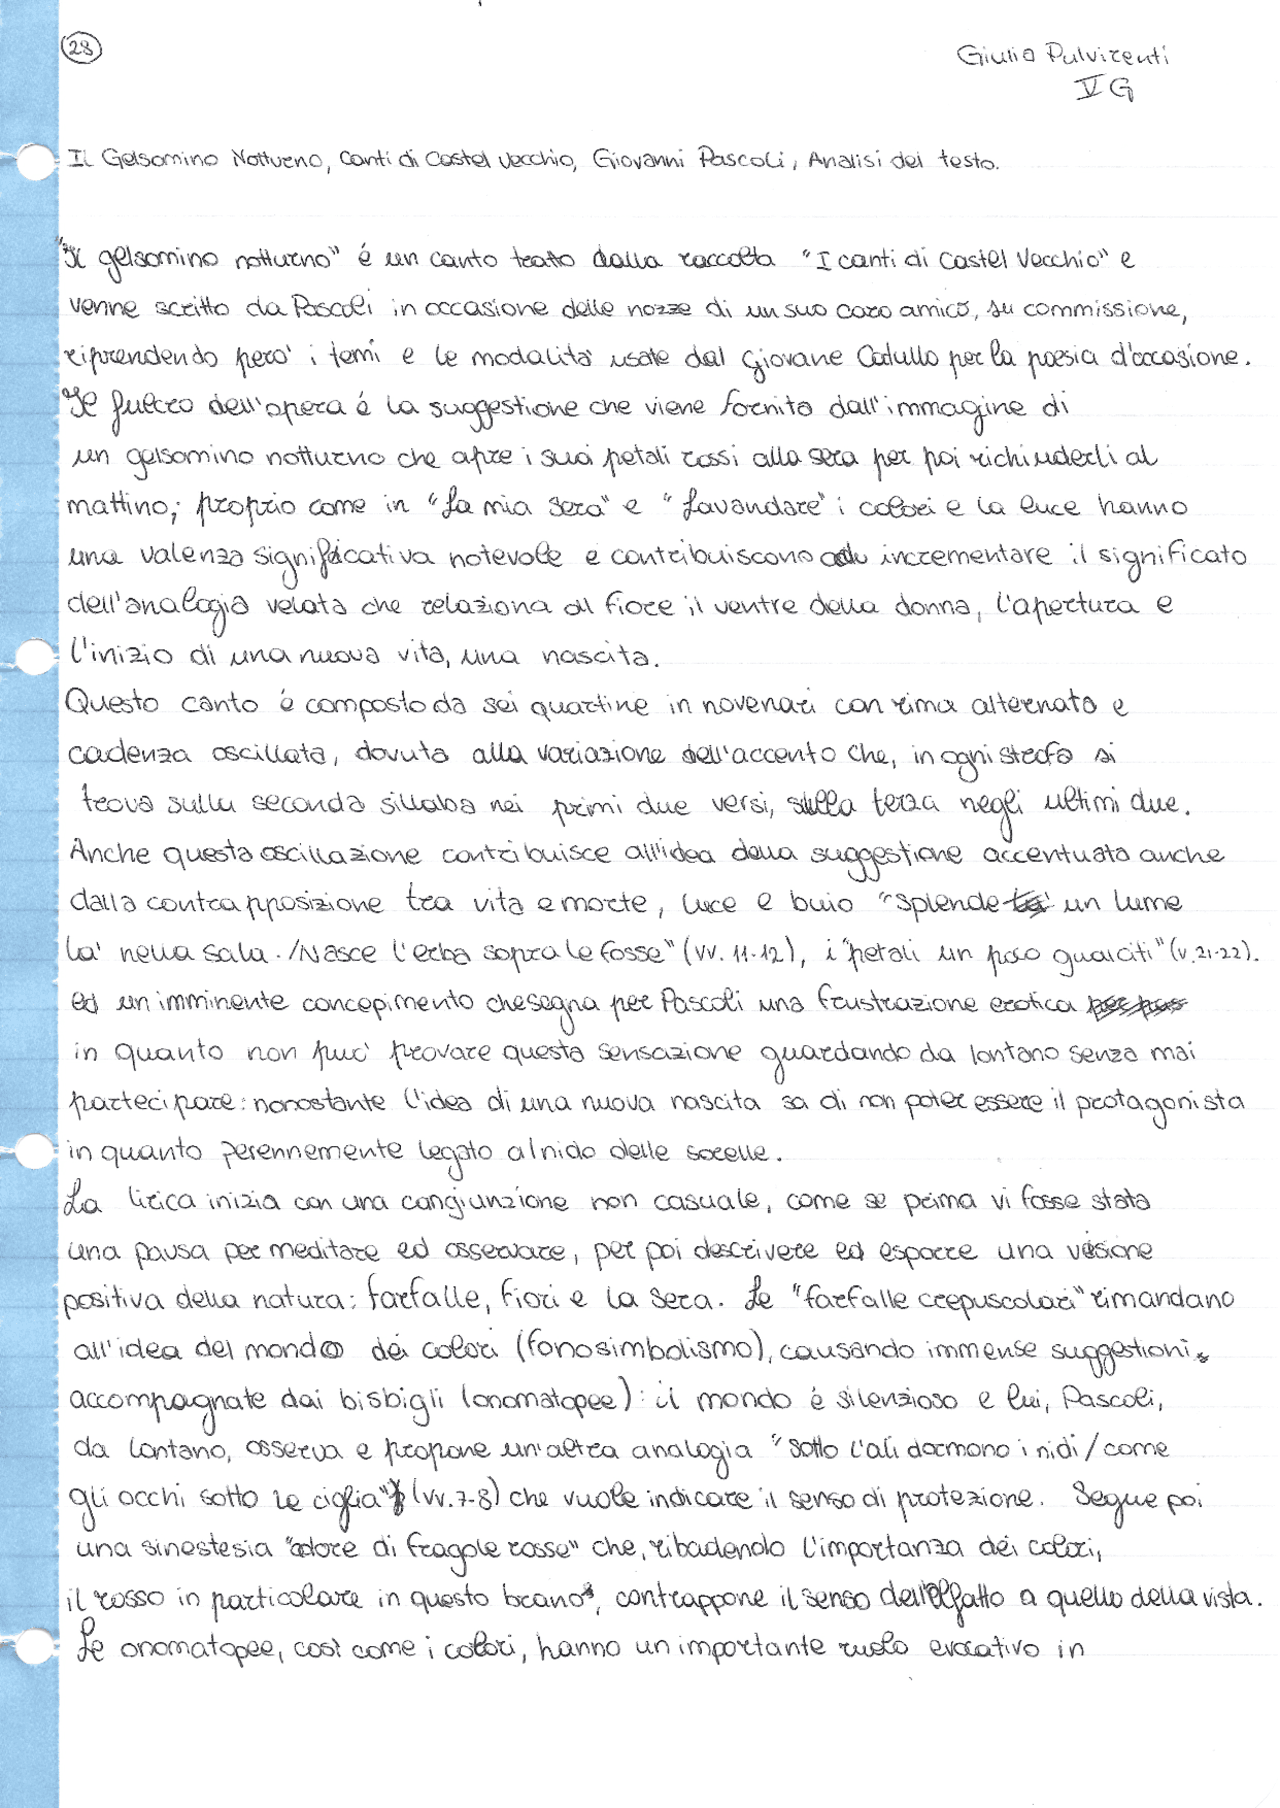 28
Giulia Pulvirenti
V G
Il Gelsomino Notturno, Canti di Castel Vecchio, Giovanni Pascoli, Analisi del testo.
"Il gelsomino notturno" é un canto tratto dalla raccolta "I canti di Castel Vecchio" e
venne scritto da Pascoli in occasione delle nozze di un suo caro amico, su commissione,
riprendendo pero' i temi e le modalita' usate dal giovane Catullo per la poesia d'occasione.
Il fulcro dell'opera é la suggestione che viene fornita dall'immagine di
un gelsomino notturno che apre i suoi petali rossi alla sera per poi richiuderli al
mattino; proprio come in "La mia sera" e "Lavandare" i colori e la luce hanno
una valenza significativa notevole e contribuiscono ad incrementare il significato
dell'analogia velata che relaziona al fiore il ventre della donna, l'apertura e
l'inizio di una nuova vita, una nascita.
Questo canto é composto da sei quartine in novenari con rima alternata e
cadenza oscillata, dovuta alla variazione dell'accento che, in ogni strofa si
trova sulla seconda sillaba nei primi due versi, sulla terza negli ultimi due.
Anche questa oscillazione contribuisce all'idea della suggestione accentuata anche
dalla contrapposizione tra vita e morte, luce e buio "Splende un lume
la' nella sala. /Nasce l'erba sopra le fosse" (vv. 11-12), i "petali un poco gualciti" (v. 21-22).
ed un imminente concepimento che segna per Pascoli una frustrazione erotica
in quanto non puo' provare questa sensazione guardando da lontano senza mai
partecipare: nonostante l'idea di una nuova nascita sa di non poter essere il protagonista
in quanto perennemente legato al nido delle sorelle.
La lirica inizia con una congiunzione non casuale, come se prima vi fosse stata
una pausa per meditare ed osservare, per poi descrivere ed esporre una visione
positiva della natura: farfalle, fiori e la sera. Le "farfalle crepuscolari" rimandano
all'idea del mondo dei colori (fonosimbolismo), causando immense suggestioni
accompagnate dai bisbigli (onomatopee): il mondo é silenzioso e lui, Pascoli,
da lontano, osserva e propone un'altra analogia "Sotto l'ali dormono i nidi / come
gli occhi sotto le ciglia" (vv. 7-8) che vuole indicare il senso di protezione. Segue poi
una sinestesia "odore di fragole rosse" che, ribadendo l'importanza dei colori,
il rosso in particolare in questo brano, contrappone il senso dell'olfatto a quello della vista.
Le onomatopee, così come i colori, hanno un importante ruolo evocativo in